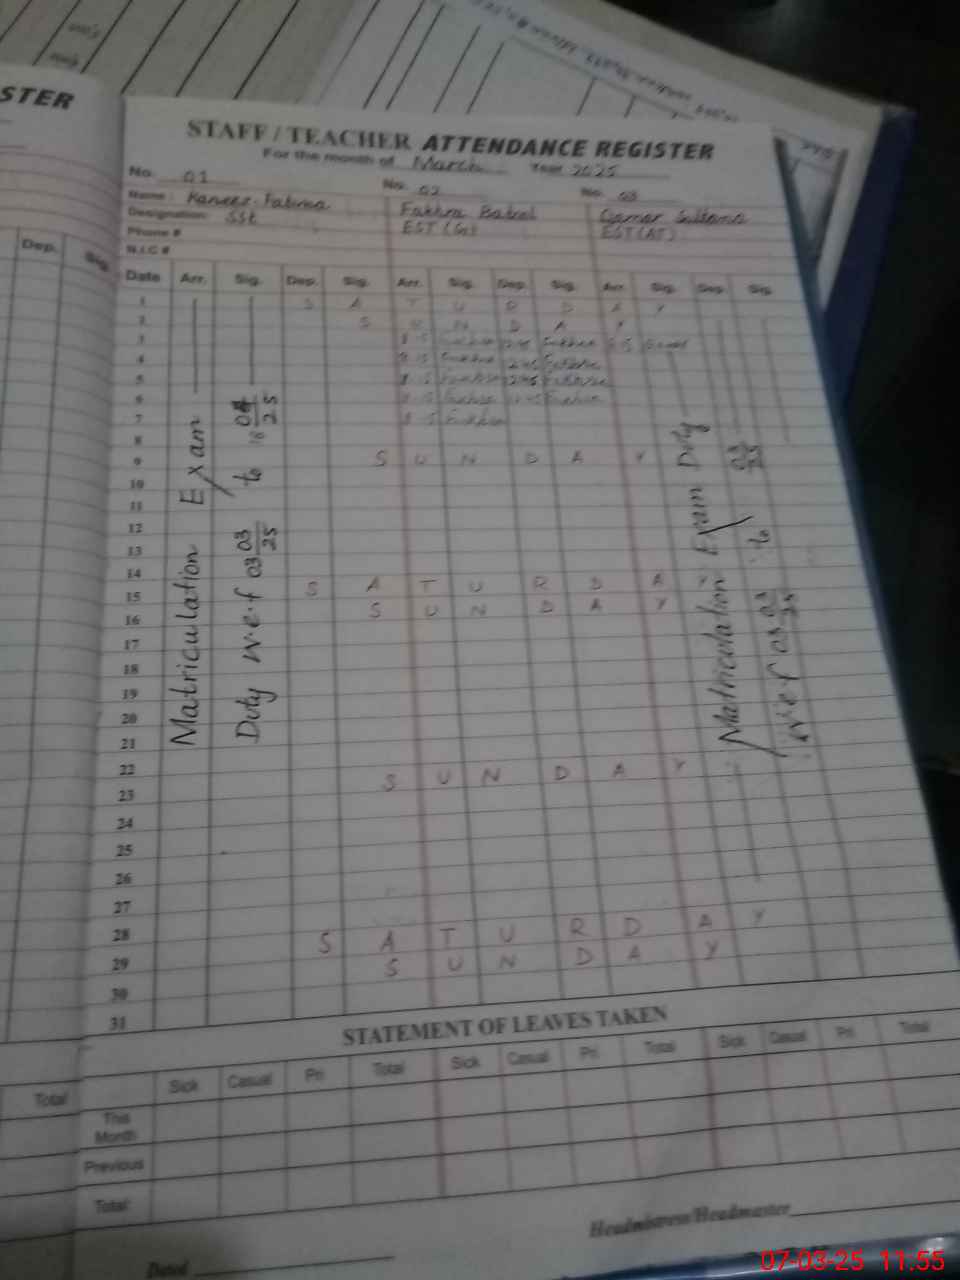 STER
STAFF / TEACHER ATTENDANCE REGISTER
For the month of March Year 2025
No. 01 No. 02 No. 03
Name: Kaneez Fatima Fakhra Batool Qamar Sultana
Designation: SSt EST (Sc) EST (AT)
Phone #
N.I.C #
Dep. Sig.
Date Arr. Sig. Dep. Sig. Arr. Sig. Dep. Sig. Arr. Sig. Dep. Sig.
1 S A T U R D A Y
2 S U N D A Y
3 8 15 Fakhra 12:45 Fakhra 8 15
4 8 15 Fakhra 12:45 Fakhra
5 8 15 Fakhra 12:45 Fakhra
6 8 15 Fakhra 12:45 Fakhra
7 8 15 Fakhra
8
9 S U N D A Y
10
11
12
13
14
15 S A T U R D A Y
16 S U N D A Y
17
18
19
20
21
22
23 S U N D A Y
24
25
26
27
28
29 S A T U R D A Y
30 S U N D A Y
31
Matriculation Exam
Duty w.e.f 03 03/25 to
Matriculation Exam Duty
w.e.f 03 03/25 to
STATEMENT OF LEAVES TAKEN
Sick Casual Pri Total Sick Casual Pri Total Sick Casual Pri Total
Total
This Month
Previous
Total
Headmistress/Headmaster
Dated
07-03-25 11:55